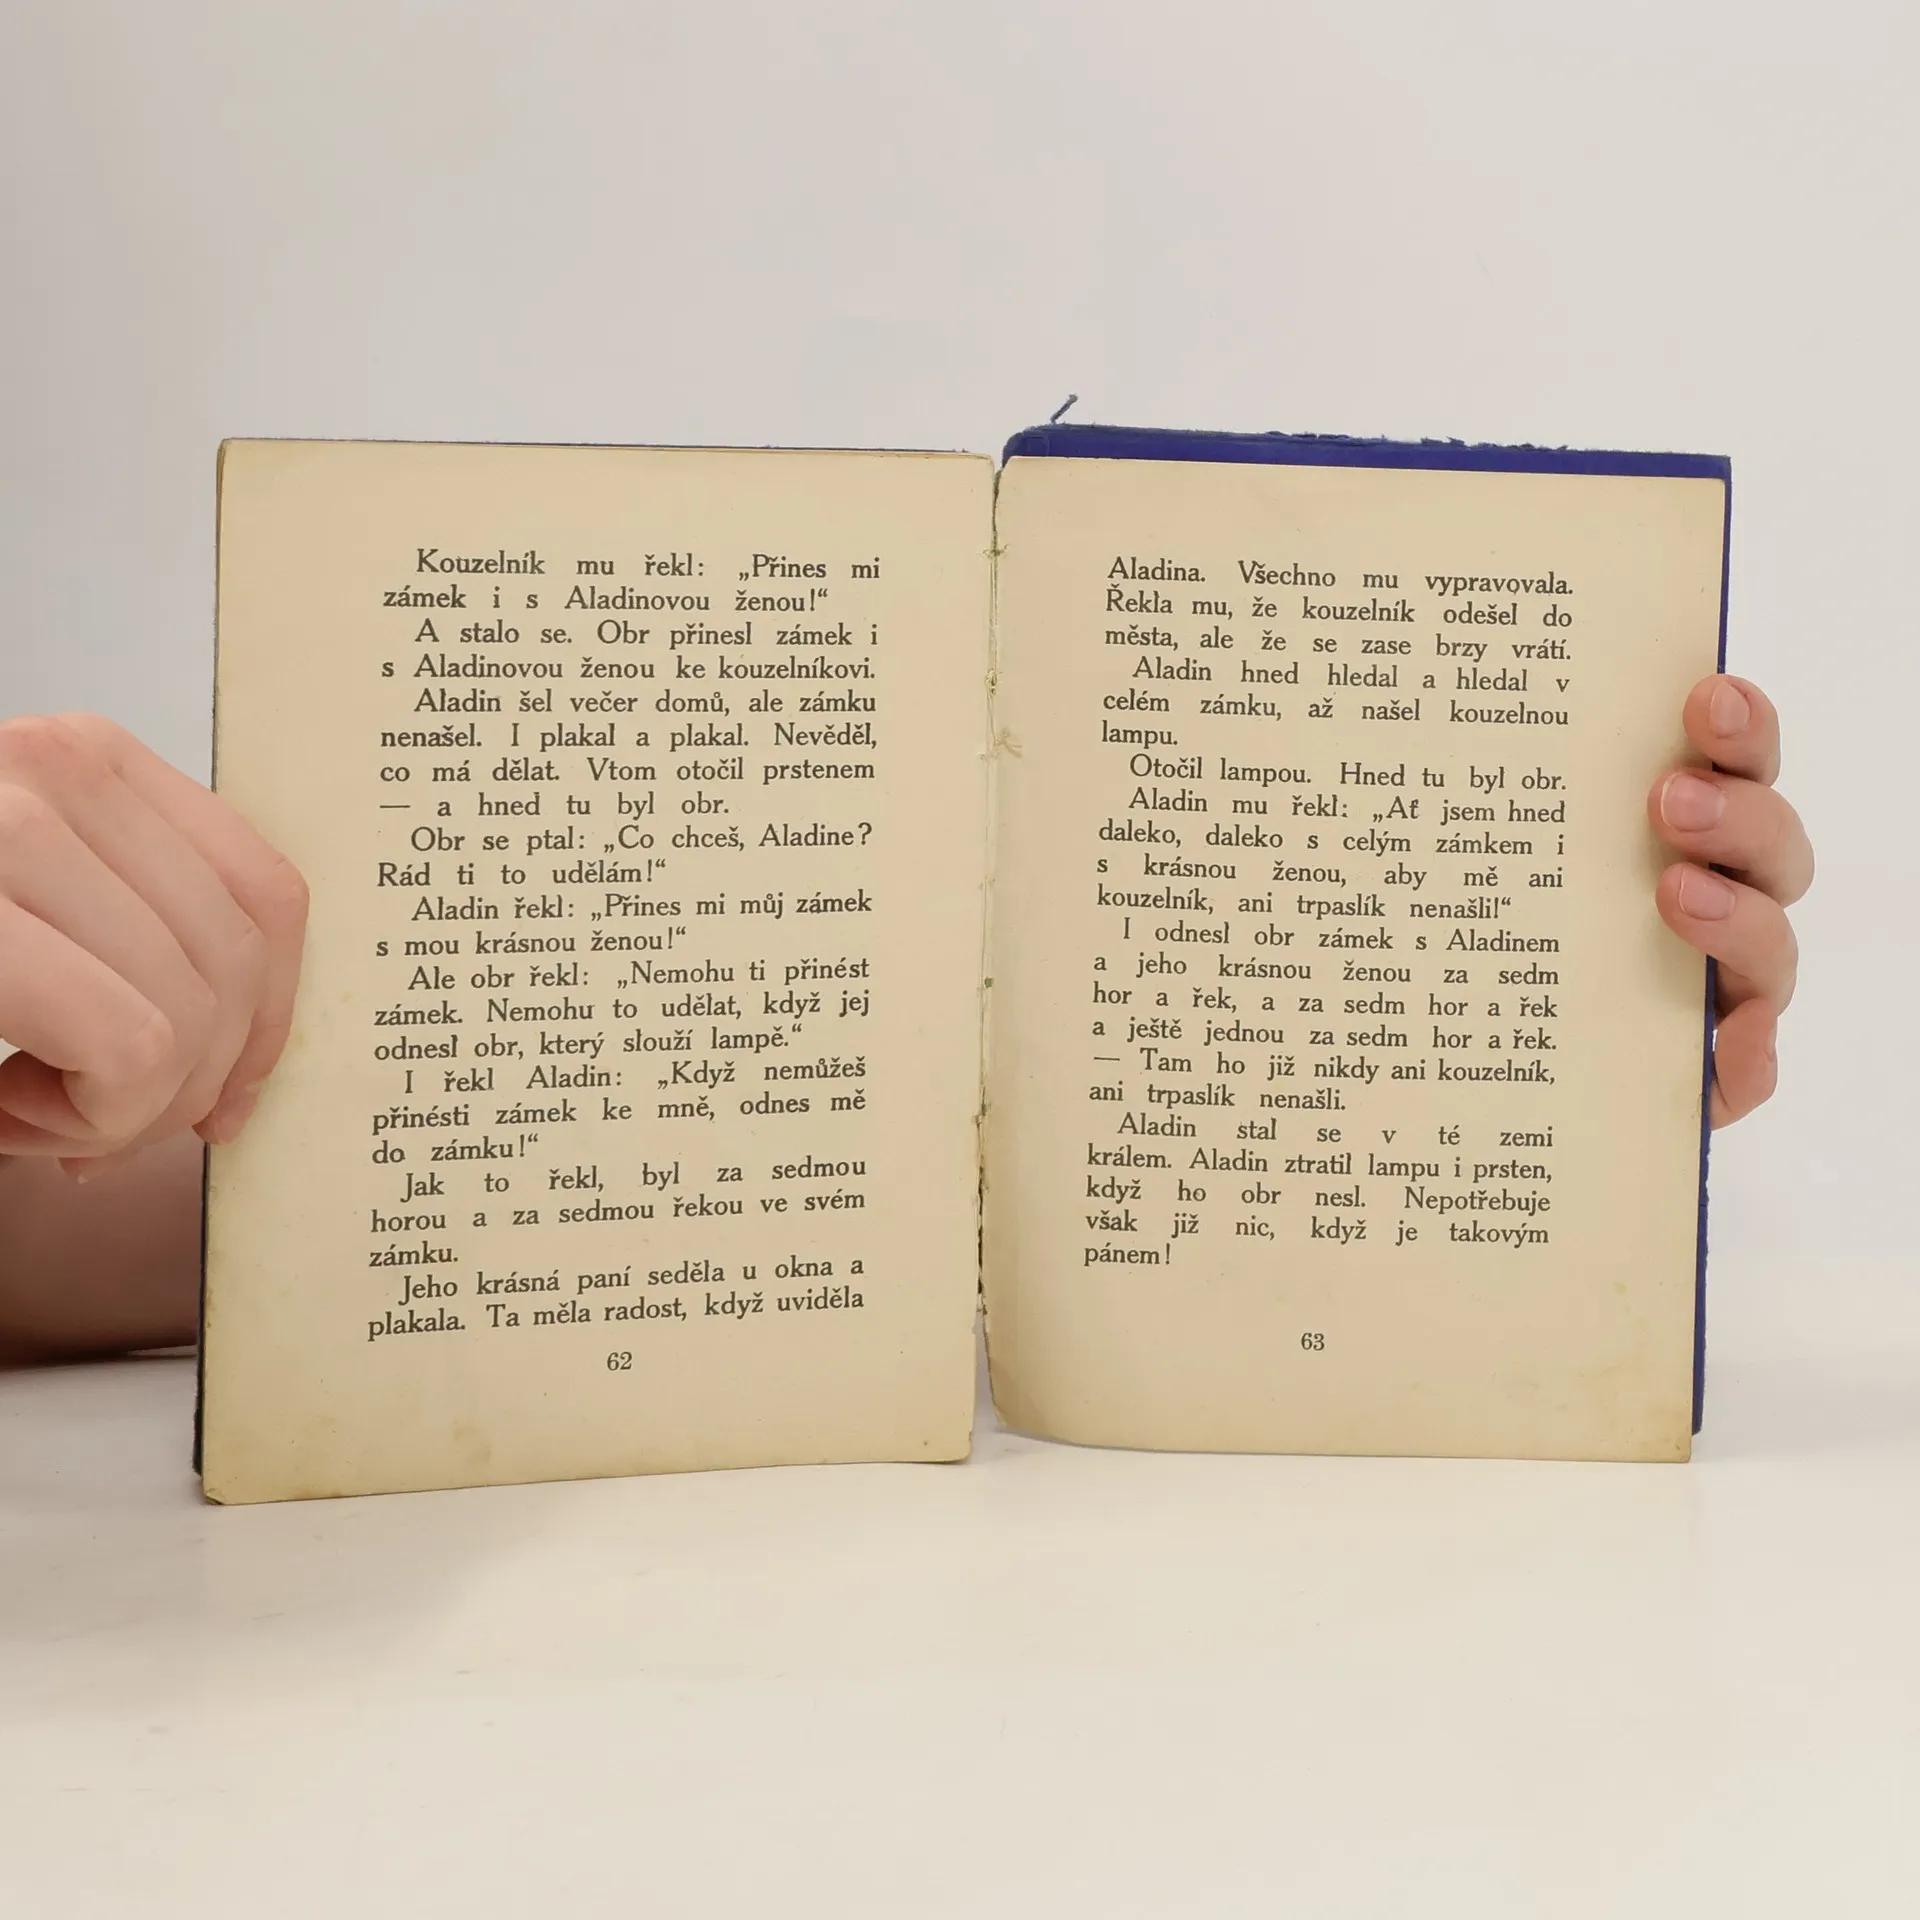 Kouzelník mu řekl: „Přines mi
zámek i s Aladinovou ženou!“
A stalo se. Obr přinesl zámek i
s Aladinovou ženou ke kouzelníkovi.
Aladin šel večer domů, ale zámku
nenašel. I plakal a plakal. Nevěděl,
co má dělat. Vtom otočil prstenem
— a hned tu byl obr.
Obr se ptal: „Co chceš, Aladine?
Rád ti to udělám!“
Aladin řekl: „Přines mi můj zámek
s mou krásnou ženou!“
Ale obr řekl: „Nemohu ti přinést
zámek. Nemohu to udělat, když jej
odnesl obr, který slouží lampě.“
I řekl Aladin: „Když nemůžeš
přinésti zámek ke mně, odnes mě
do zámku!“
Jak to řekl, byl za sedmou
horou a za sedmou řekou ve svém
zámku.
Jeho krásná paní seděla u okna a
plakala. Ta měla radost, když uviděla
62
Aladina. Všechno mu vypravovala.
Řekla mu, že kouzelník odešel do
města, ale že se zase brzy vrátí.
Aladin hned hledal a hledal v
celém zámku, až našel kouzelnou
lampu.
Otočil lampou. Hned tu byl obr.
Aladin mu řekl: „Ať jsem hned
daleko, daleko s celým zámkem i
s krásnou ženou, aby mě ani
kouzelník, ani trpaslík nenašli!“
I odnesl obr zámek s Aladinem
a jeho krásnou ženou za sedm
hor a řek, a za sedm hor a řek
a ještě jednou za sedm hor a řek.
— Tam ho již nikdy ani kouzelník,
ani trpaslík nenašli.
Aladin stal se v té zemi
králem. Aladin ztratil lampu i prsten,
když ho obr nesl. Nepotřebuje
však již nic, když je takovým
pánem!
63